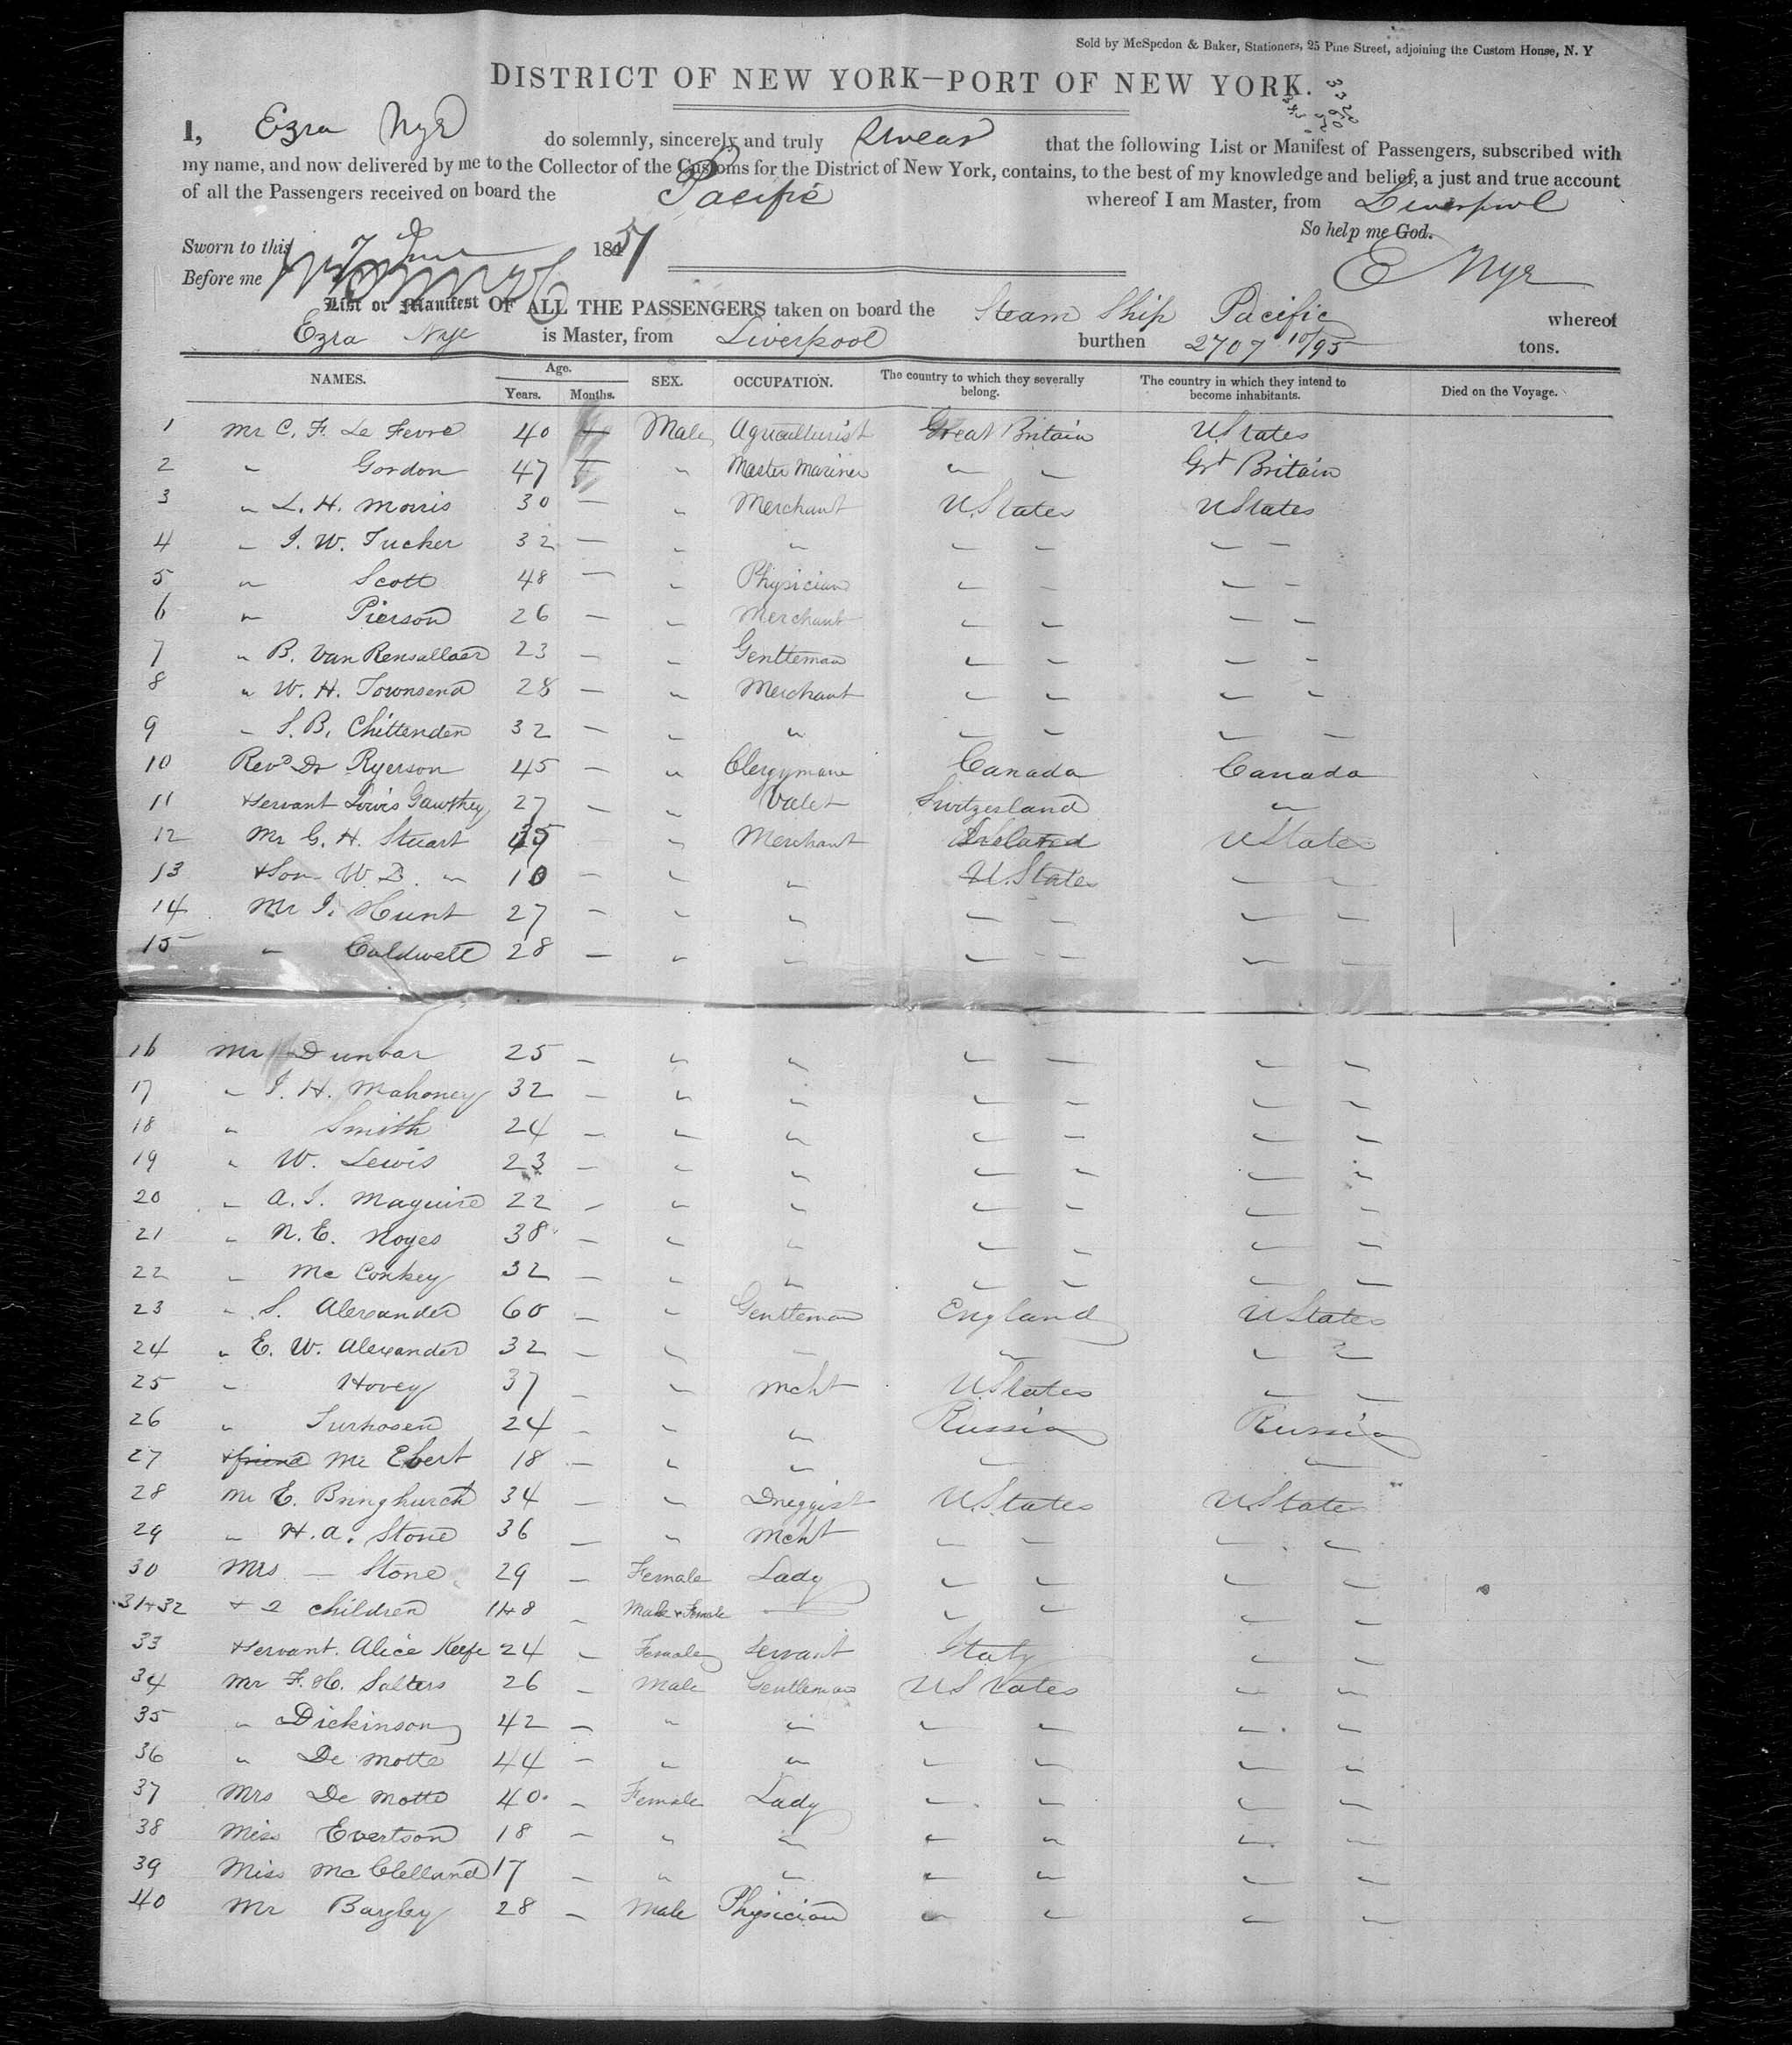 Sold by McSpedon & Baker, Stationers, 25 Pine Street, adjoining the Custom House, N. Y
DISTRICT OF NEW YORK—PORT OF NEW YORK.
I, Ezra Nye do solemnly, sincerely and truly swear that the following List or Manifest of Passengers, subscribed with
my name, and now delivered by me to the Collector of the Customs for the District of New York, contains, to the best of my knowledge and belief, a just and true account
of all the Passengers received on board the Pacific whereof I am Master, from Liverpool
So help me God.
Sworn to this 7 June 1851
Before me E Nye
List or Manifest OF ALL THE PASSENGERS taken on board the Steam Ship Pacific whereof
Ezra Nye is Master, from Liverpool burthen 2707 10/95 tons.
NAMES. Age. Years. Months. SEX. OCCUPATION. The country to which they severally belong. The country in which they intend to become inhabitants. Died on the Voyage.
1 Mr C. F. Le Fevre 40 — Male Agriculturist Great Britain U States
2 " Gordon 47 — " Master Mariner " " Grt Britain
3 " L. H. Morris 30 — " Merchant U. States U States
4 " J. W. Tucker 32 — " " " " " "
5 " Scott 48 — " Physician " " " "
6 " Pierson 26 — " Merchant " " " "
7 " B. Van Rensallaer 23 — " Gentleman " " " "
8 " W. H. Townsend 28 — " Merchant " " " "
9 " S. B. Chittenden 32 — " " " " " "
10 Revd Dr Ryerson 45 — " Clergyman Canada Canada
11 +servant Lewis Gawthey 27 — " Valet Switzerland "
12 Mr G. H. Stuart " Merchant Ireland U States
13 +Son W. D. " 10 — " " U. States " "
14 Mr J. Hunt 27 — " " " " " "
15 " Caldwell 28 — " " " " " "
16 Mr Dunbar 25 — " " " " " "
17 " J. H. Mahoney 32 — " " " " " "
18 " Smith 24 — " " " " " "
19 " W. Lewis 23 — " " " " " "
20 " A. J. Maguire 22 — " " " " " "
21 " N. E. Noyes 38 — " " " " " "
22 " Mc Conkey 32 — " " " " " "
23 " S. Alexander 60 — " Gentleman England U States
24 " E. W. Alexander 32 — " " " " "
25 " Hovey 37 — " Mcht U. States " "
26 " 24 — " " Russia Russia
27 +friend Mr Ebert 18 — " " " "
28 Mr E. Bringhurst 34 — " Druggist U. States U States
29 " H. A. Stone 36 — " Mcht " " " "
30 Mrs — Stone 29 — Female Lady " " " "
31+32 + 2 children 11+8 — Male + Female — " " " "
33 +servant Alice Keefe 24 — Female Servant Italy " "
34 Mr F. H. Salters 26 — Male Gentleman U States " "
35 " Dickinson 42 — " " " " " "
36 " De Motte 44 — " " " " " "
37 Mrs De Motte 40 — Female Lady " " " "
38 Miss Evertson 18 — " " " " " "
39 Miss Mc Clelland 17 — " " " " " "
40 Mr Bagley 28 — Male Physician " " " "